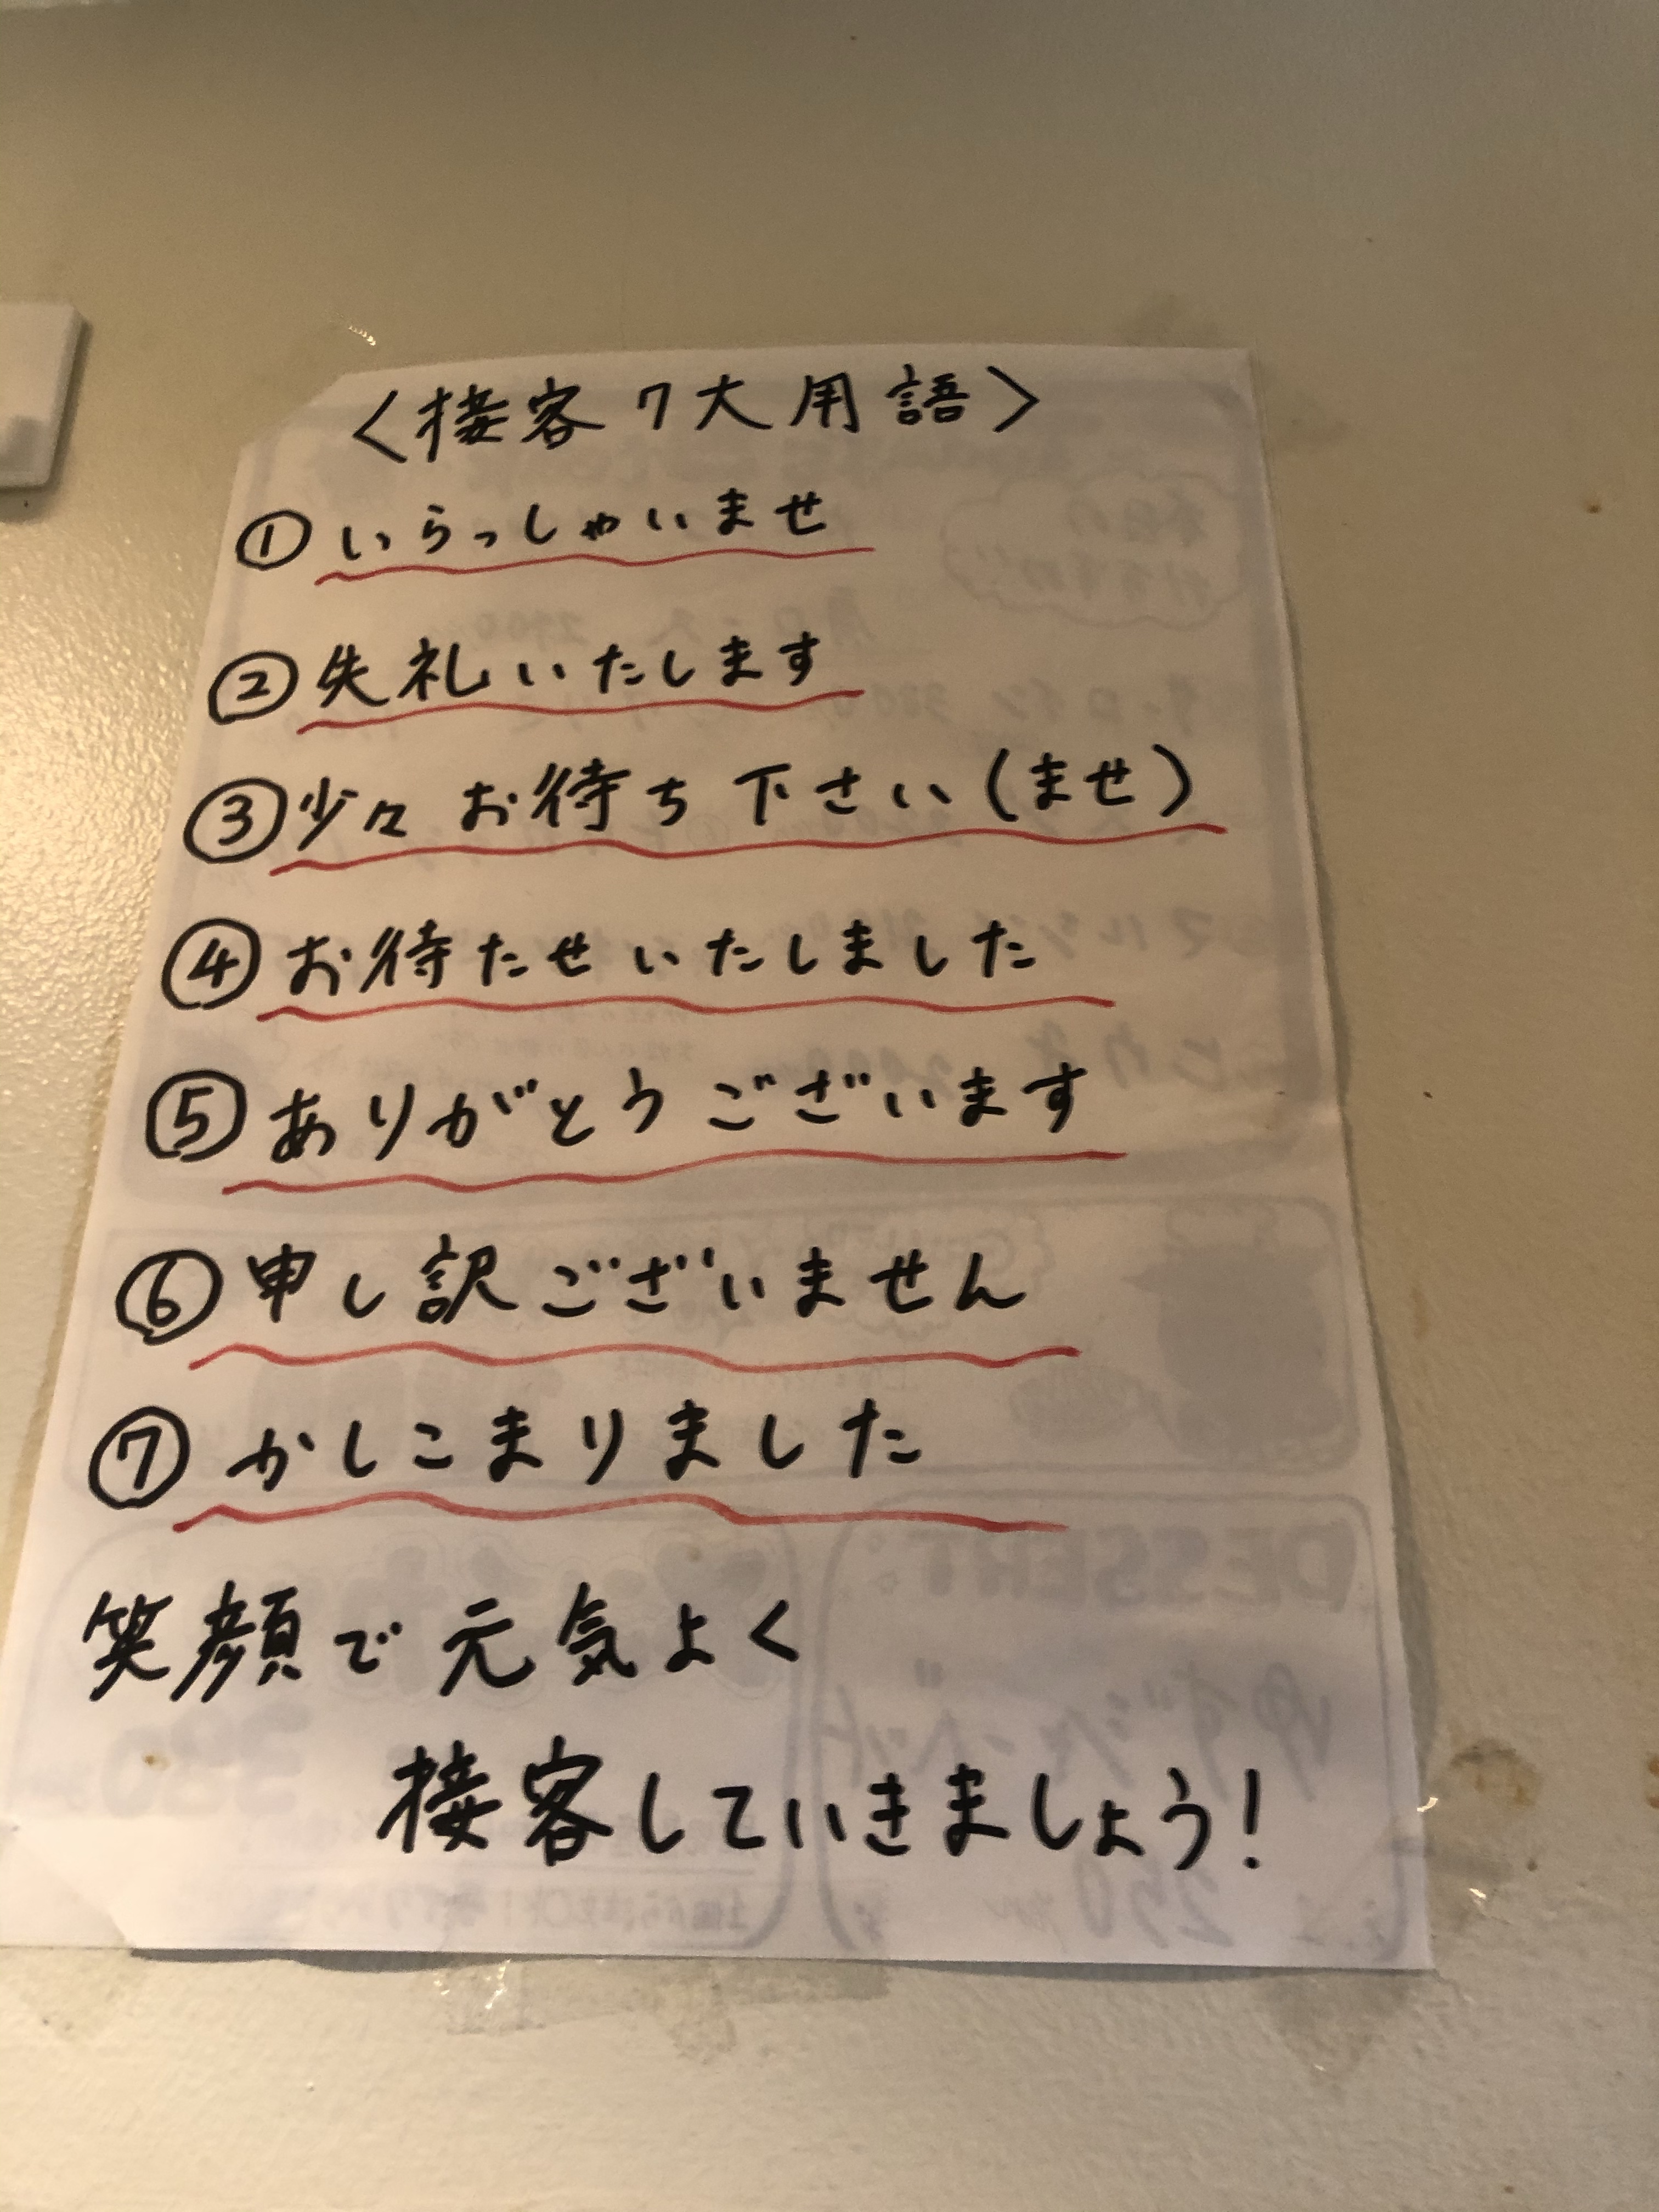 <接客7大用語>
① いらっしゃいませ
② 失礼いたします
③ 少々お待ち下さい(ませ)
④ お待たせいたしました
⑤ ありがとうございます
⑥ 申し訳ございません
⑦ かしこまりました
笑顔で元気よく
接客していきましょう!
DESSERT
ゆずシャーベット
250